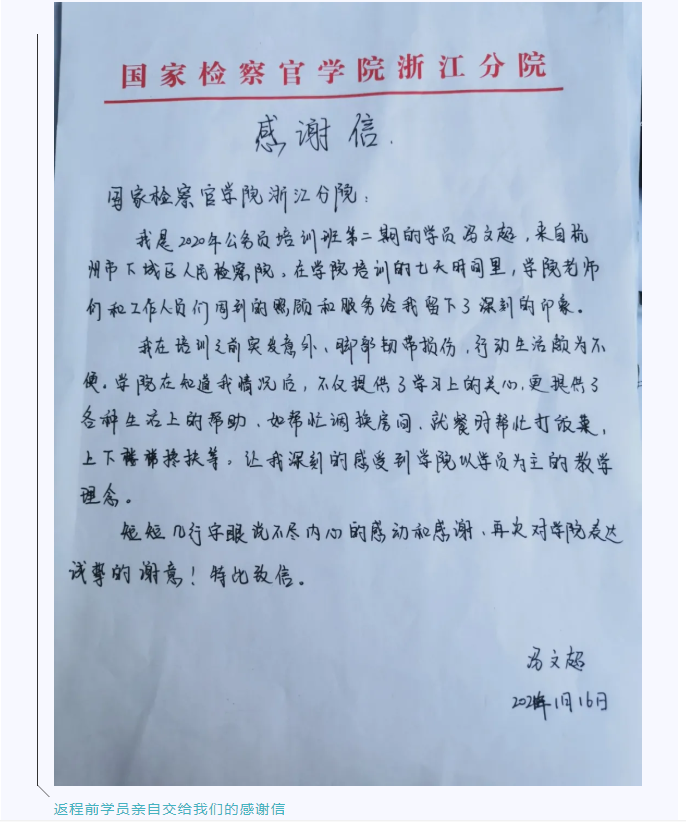 国家检察官学院浙江分院
感谢信.
国家检察官学院浙江分院：
我是2020年公务员培训班第二期的学员冯文超，来自杭
州市下城区人民检察院。在学院培训的七天时间里，学院老师
们和工作人员们周到的照顾和服务给我留下了深刻的印象。
我在培训之前突发意外、脚部韧带损伤，行动生活颇为不
便。学院在知道我情况后，不仅提供了学习上的关心，更提供了
各种生活上的帮助、如帮忙调换房间、就餐时帮忙打饭菜，
上下楼梯搀扶等。让我深刻的感受到学院以学员为主的教学
理念。
短短几行字眼说不尽内心的感动和感谢、再次对学院表达
诚挚的谢意！特此致信。
冯文超
2021年1月16日
返程前学员亲自交给我们的感谢信